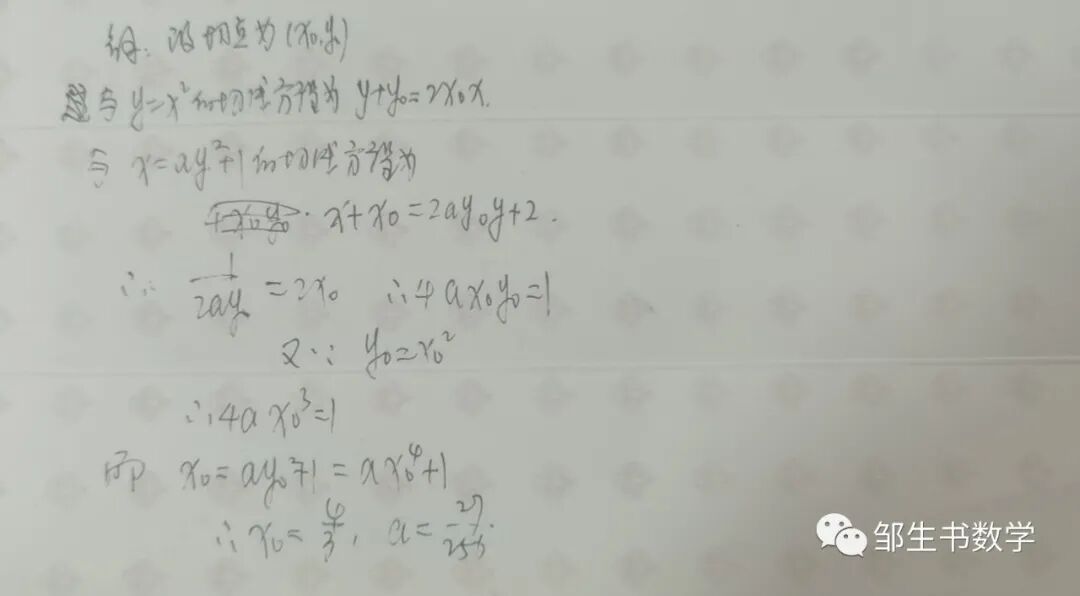 解：设切点为(x₀,y₀)
与y=x²的切线方程为 y+y₀=2x₀x.
与 x=ay²+1的切线方程为
x+x₀=2ay₀y+2.
∴ 1/2ay₀=2x₀ ∴4ax₀y₀=1
又∵ y₀=x₀²
∴4ax₀³=1
即 x₀=ay₀²+1=ax₀⁴+1
∴x₀=4/3, a=27/256.
邹生书数学